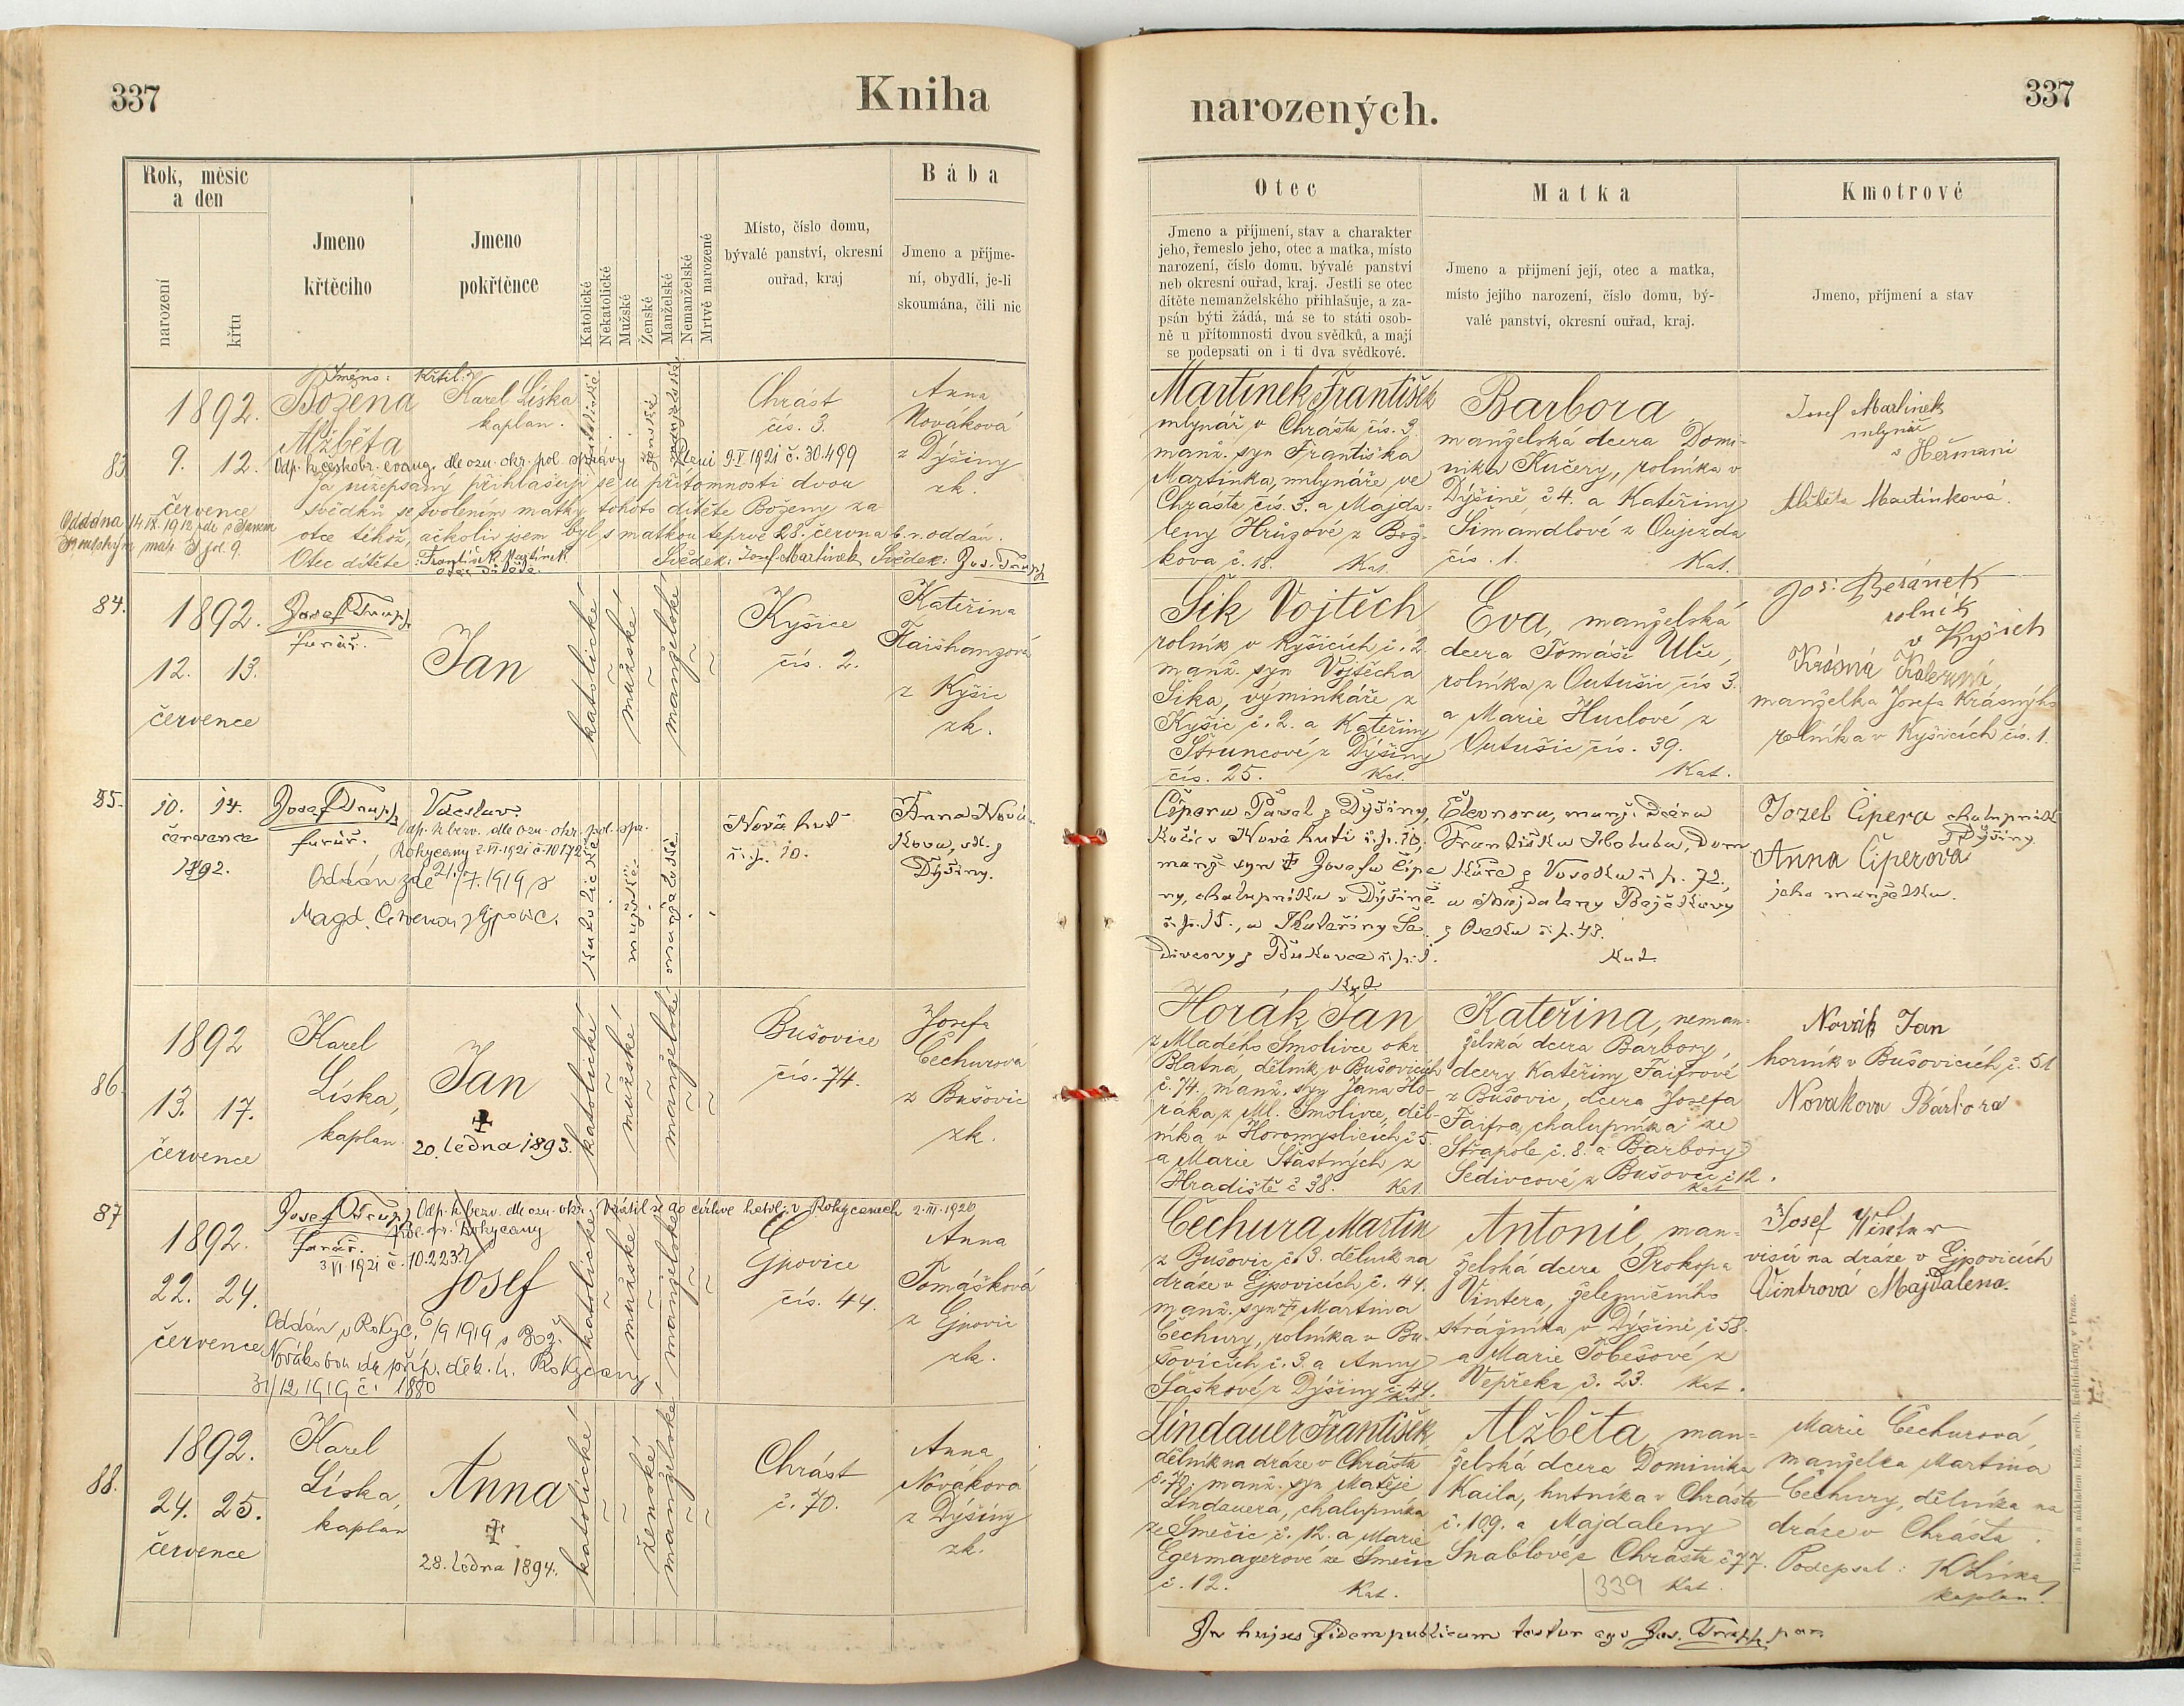 337
Kniha
narozených.
337
Rok, měsíc
a den
narození
křtu
Jmeno
křtěcího
Jmeno
pokřtěnce
Katolické
Nekatolické
Mužské
Ženské
Manželské
Nemanželské
Mrtvě narozené
Místo, číslo domu,
bývalé panství, okresní
ouřad, kraj
Bába
Jmeno a příjme-
ní, obydlí, je-li
skoumána, čili nic
Otec
Jmeno a příjmení, stav a charakter
jeho, řemeslo jeho, otec a matka, místo
narození, číslo domu, bývalé panství
neb okresní ouřad, kraj. Jestli se otec
dítěte nemanželského přihlašuje, a za-
psán býti žádá, má se to státi osob-
ně u přítomnosti dvou svědků, a mají
se podepsati on i ti dva svědkové.
Matka
Jmeno a přijmení její, otec a matka,
místo jejího narození, číslo domu, bý-
valé panství, okresní ouřad, kraj.
Kmotrové
Jmeno, příjmení a stav
83
1892.
9. 12.
července
Jméno:
Božena
Alžběta
Křtil:
Karel Líska
kaplan.
katolické
ženské
Chrást
čís. 3.
Anna
Nováková
z Dýšiny
zk.
Odp. k českobr. evang. dle ozn. okr. pol. správy
9. V 1921 č. 30.499
Já nížepsaný přihlašuji se u přítomnosti dvou
svědků se svolením matky tohoto dítěte Boženy za
otce téhož, ačkoliv jsem byl s matkou teprvé 28. června b. r. oddán.
Otec dítěte: František Martínek
otec dítěte
Svědek: Josef Martinek Svědek: Jos. Trapp
Oddána 14. IX. 1912
fol. 9.
Martínek František
mlynář v Chrástě čís. 3.
manž. syn Františka
Martínka, mlynáře ve
Chrástě čís. 3. a Majda-
leny Hrůzové z Bož-
kova č. 18. Kat.
Barbora
manželská dcera Domi-
nika Kučery, rolníka v
Dýšině č 4. a Kateřiny
Šimandlové z Oujezda
čís. 1. Kat.
Josef Martinek
mlynář
v Heřmani
Alžběta Martínková.
84.
1892.
12. 13.
července
Josef Trapp,
farář.
Jan
katolické
mužské
manželské
Kyšice
čís. 2.
Kateřina
Faishanzová
z Kyšic
zk.
Šik Vojtěch
rolník v Kyšicích č. 2
manž. syn Vojtěcha
Šika, výminkáře z
Kyšic č. 2. a Kateřiny
Štruncové z Dýšiny
čís. 25. Kat.
Eva, manželská
dcera Tomáše Ulče,
rolníka z Outušic čís 3.
a Marie Huclové z
Outušic čís. 39.
Kat.
Jos. Beránek
rolník
v Kyšicích
Krásná Kateřina,
manželka Josefa Krásného
rolníka v Kyšicích čís. 1.
85.
10. 14.
července
1892.
Josef Trapp,
farář.
Václav.
Odp. k bezv. dle ozn. okr. pol. spr.
Rokycany 2. VI. 1921 č. 10172
Oddán zde 21./7. 1919 s
Magd. Červenou z Ejpovic.
katolické
mužské
manželské
Nová huť
č. p. 10.
Anna Nová-
kova, zk. z
Dýšiny.
Čipera Pavel z Dýšiny,
kočí v Nové huti č. p. 10,
manž. syn ✝ Josefa Čipe-
ry, chalupníka v Dýšině
č. p. 15., a Kateřiny Še-
divcovy z Bukovce č. p. 1.
Kat.
Eleonora, manž. dcera
Františka Holuba, dom-
káře z Voseka č. p. 72.,
a Majdaleny Bejčkovy
z Oseka č. p. 43.
Kat.
Jozef Čipera chalupník
z Dýšiny
Anna Čiperová
jeho manželka.
86.
1892
13. 17.
července
Karel
Líska,
kaplan.
Jan
✝
20. ledna 1893.
katolické
mužské
manželské
Bušovice
čís. 74.
Josefa
Čechurová
z Bušovic
zk.
Horák Jan
z Mladého Smolivce okr.
Blatná, dělník v Bušovicích
č. 74. manž. syn Jana Ho-
ráka z Ml. Smolivce, děl-
níka v Horomyslicích č 5.
a Marie Šťastných z
Hradiště č 38. Kat.
Kateřina, neman-
želská dcera Barbory,
dcery Kateřiny Faifrové
z Bušovic, dcera Josefa
Faifra, chalupníka ze
Střapole č. 8. a Barbory
Šedivcové z Bušovic č 12.
Kat.
Novák Jan
horník v Bušovicích č. 51
Novakova Barbora
87
1892.
22. 24.
července
Josef Trapp,
farář.
Odp. k bezv. dle ozn. okr.
pol. spr. Rokycany
3 VI. 1921 č. 10.223.
Vrátil se do církve katol. v Rokycanech 2. III. 1926
Josef
Oddán v Rokyc. 6/9 1919 s Bož.
Novákovou dle příp. děk. ú. Rokycany
31/12 1919 č. 1880
katolické
mužské
manželské
Ejpovice
čís. 44.
Anna
Tomášková
z Ejpovic
zk.
Čechura Martin
z Bušovic č. 3. dělník na
dráze v Ejpovicích č. 44.
manž. syn ✝ Martina
Čechury, rolníka v Bu-
šovicích č. 3. a Anny
Šaškové z Dýšiny č. 44.
Kat.
Antonie, man-
želská dcera Prokopa
Vintera, železničního
strážníka v Dýšině č 58.
a Marie Tobešové z
Vepřeka 3. 23. Kat.
Josef
na dráze v Ejpovicích
Vintrová Majdalena.
88.
1892.
24. 25.
července
Karel
Líska,
kaplan
Anna
✝
28. ledna 1894.
katolické
ženské
manželské
Chrást
č. 70.
Anna
Nováková
z Dýšiny
zk.
Lindauer František,
dělník na dráze v Chrástě
č. 70. manž. syn Matěje
Lindauera, chalupníka
ze Smečic č. 12. a Marie
Egermayerové ze Smečic
č. 12. Kat.
Alžběta, man-
želská dcera Dominika
Kaila, hutníka v Chrástě
č. 109. a Majdaleny
Šnablové z Chrástu č 77.
339 Kat.
Marie Čechurová,
manželka Martina
Čechury, dělníka na
dráze v Chrástě.
Podepsal: K Líska,
kaplan.
In hujus fidem publicam testor ego Jos. Trapp, par.
Tiskem a nákladem kníž. arcib. knihtiskárny v Praze.